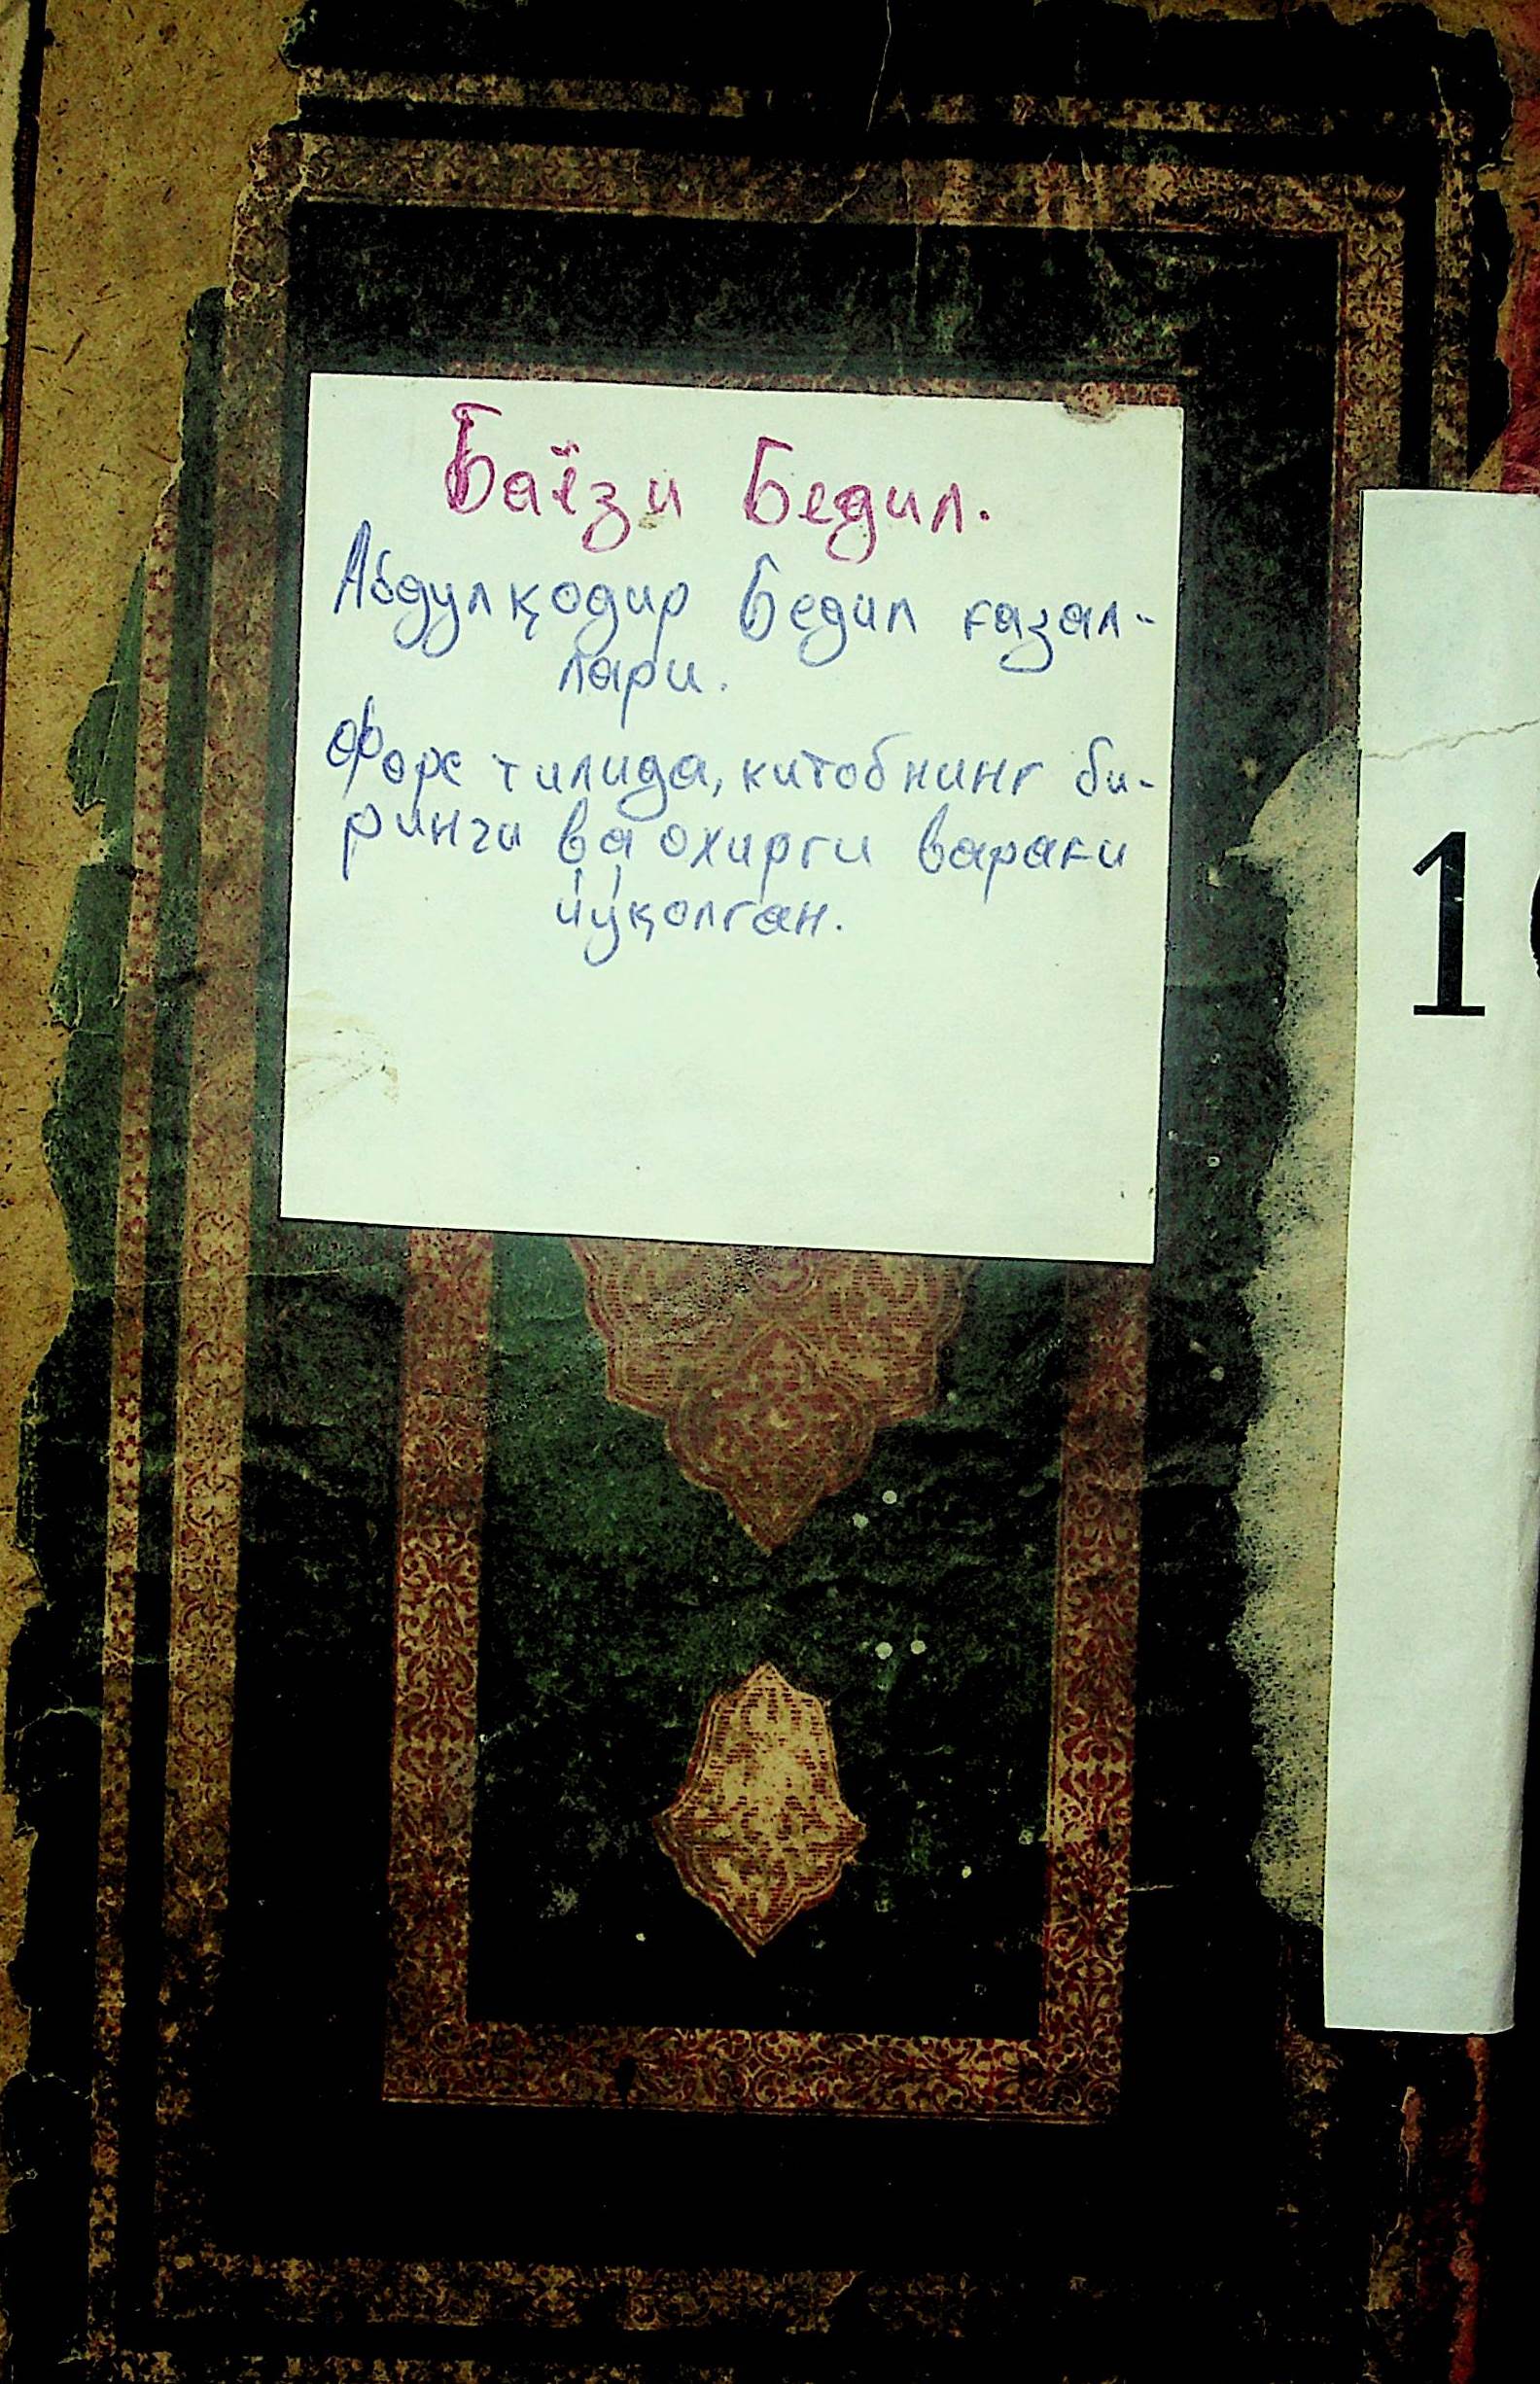 Баёзи Бедил.
Абдулқодир Бедил ғазал-
лари.
Форс тилида, китобнинг би-
ринчи ва охирги варағи
йўқолган.
1